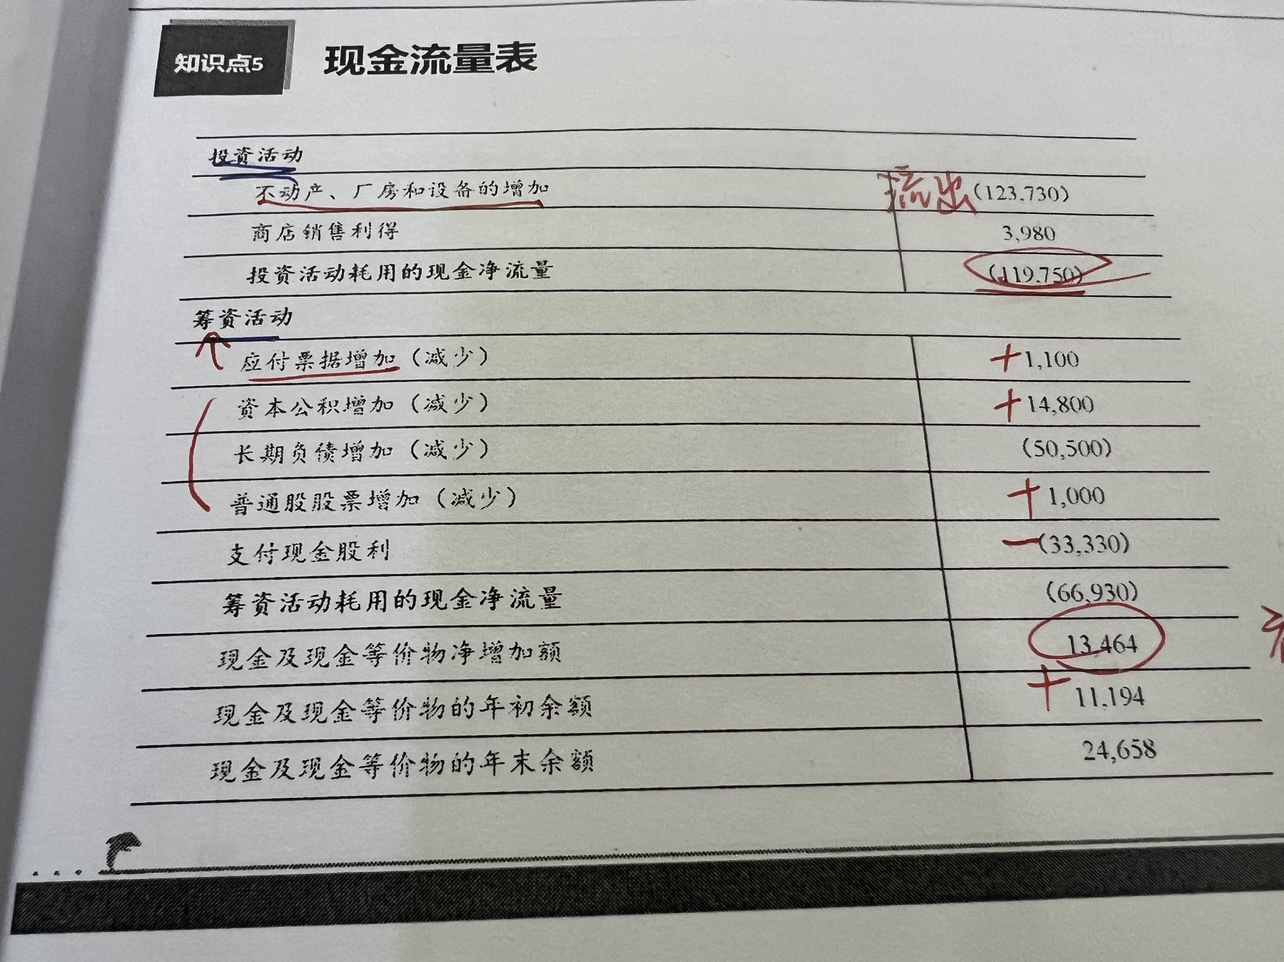 知识点5 现金流量表
投资活动
不动产、厂房和设备的增加 流出 (123,730)
商店销售利得 3,980
投资活动耗用的现金净流量 (119,750)
筹资活动
应付票据增加(减少) +1,100
资本公积增加(减少) +14,800
长期负债增加(减少) (50,500)
普通股股票增加(减少) +1,000
支付现金股利 -(33,330)
筹资活动耗用的现金净流量 (66,930)
现金及现金等价物净增加额 13,464
现金及现金等价物的年初余额 +11,194
现金及现金等价物的年末余额 24,658